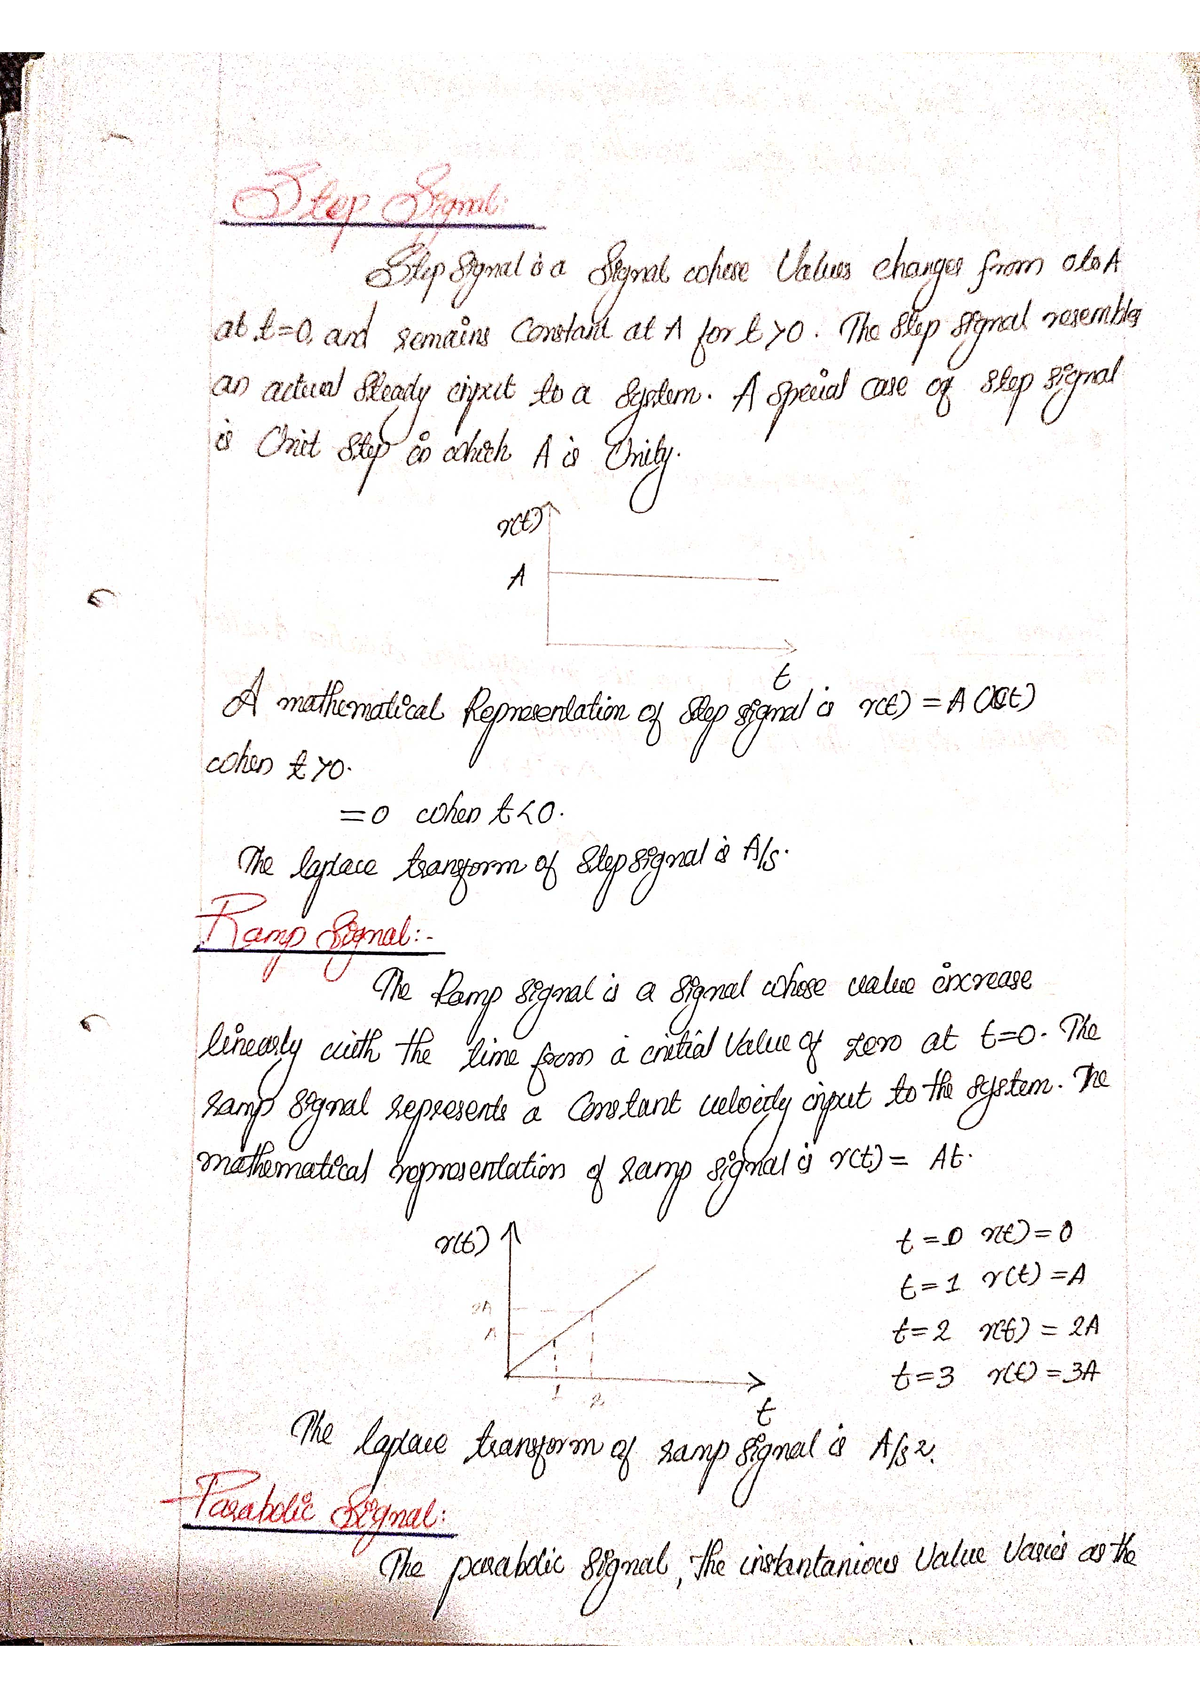 Step Signal:
Step Signal is a Signal whose Values changes from 0 to A
at t=0, and remains Constant at A for t>0. The Step Signal resembles
an actual Steady input to a System. A special case of step signal
is Unit Step in which A is Unity.
r(t)
A
t
A mathematical Representation of Step signal is r(t) = A U(t)
when t>0.
=0 when t<0.
The laplace transform of Step signal is A/s.
Ramp Signal:-
The Ramp Signal is a Signal whose value increase
linearly with the time from a initial Value of zero at t=0. The
ramp signal represents a Constant velocity input to the system. The
mathematical representation of ramp signal is r(t) = At.
r(t)
2A
A
1 2
t
t=0 r(t)=0
t=1 r(t)=A
t=2 r(t)=2A
t=3 r(t)=3A
The laplace transform of ramp signal is A/s2.
Parabolic Signal:
The parabolic Signal, The instantanious Value Varies as the